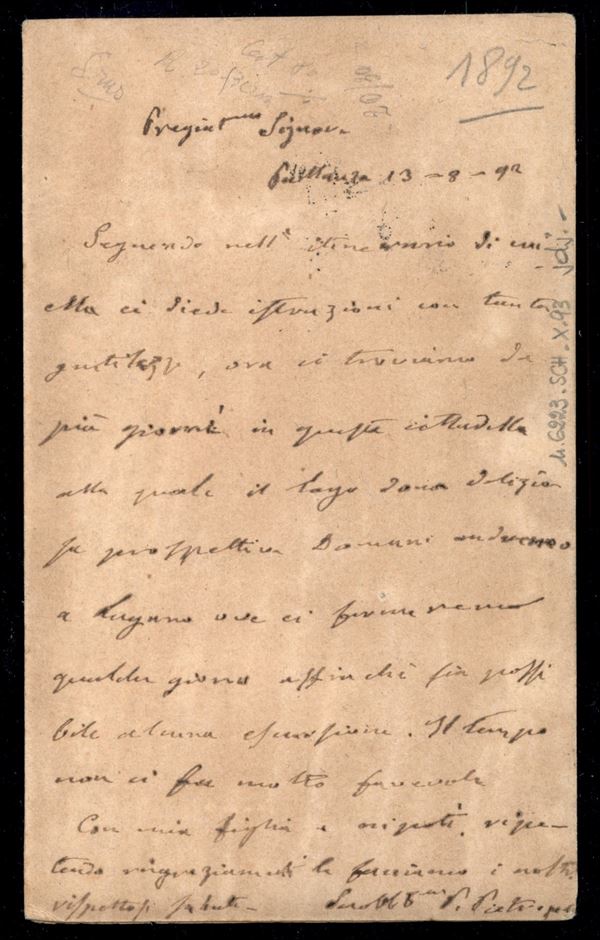 1892
Pregiat.ma Signora
Pallanza 13-8-92
Seguendo nell' itinerario di cui
ella ci diede istruzioni con tanta
gentilezza, ora ci troviamo da
più giorni in questa cittadella
alla quale il lago dona delizio
sa prospettiva Domani andremo
a Lugano ove ci fermeremo
qualche giorno affinchè sia possi
bile alcuna escursione. Il tempo
non ci fu molto favorevole
Con mia figlia e nipoti, ripe-
tendo ringraziamenti le facciamo i nostri
rispettosi saluti